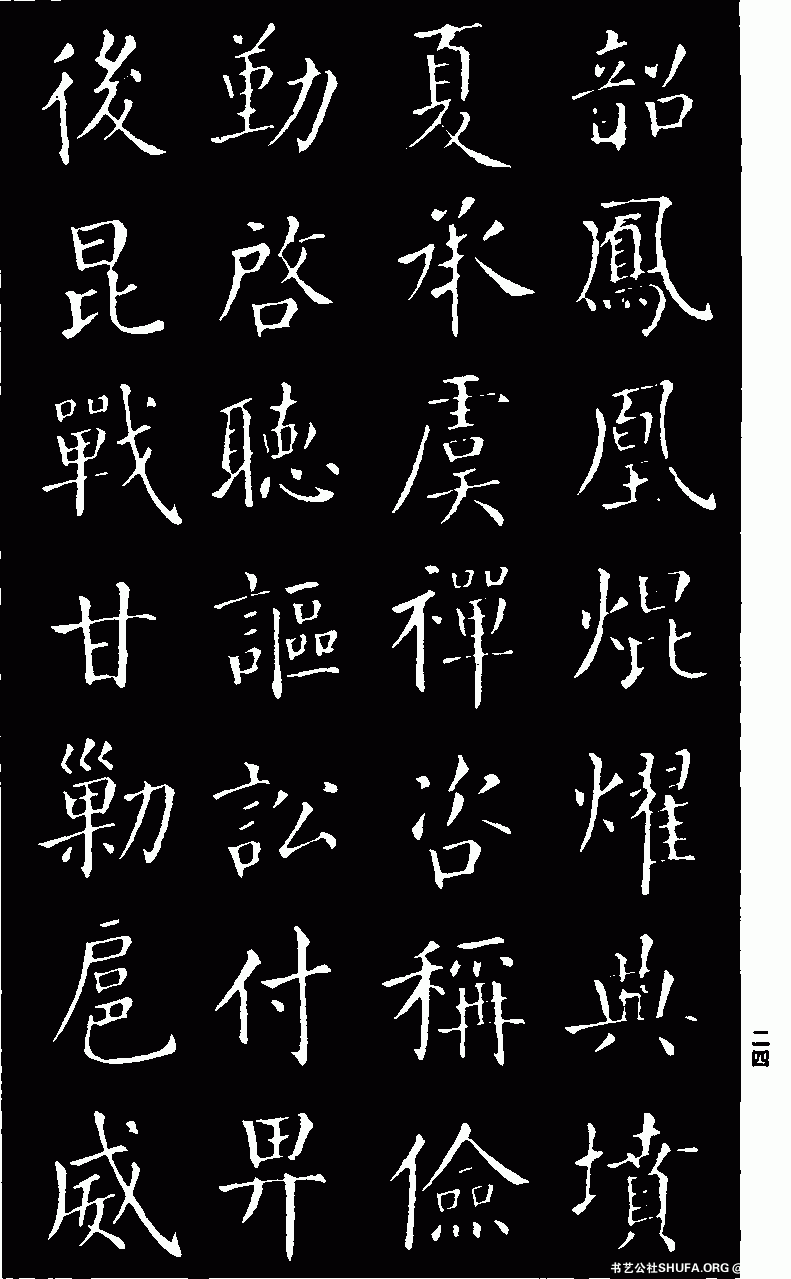 韶鳳凰焜燿典墳
夏承虞禪咨稱儉
勤啓聽謳訟付畀
後昆戰甘勦扈威
二四
书艺公社SHUFA.ORG @